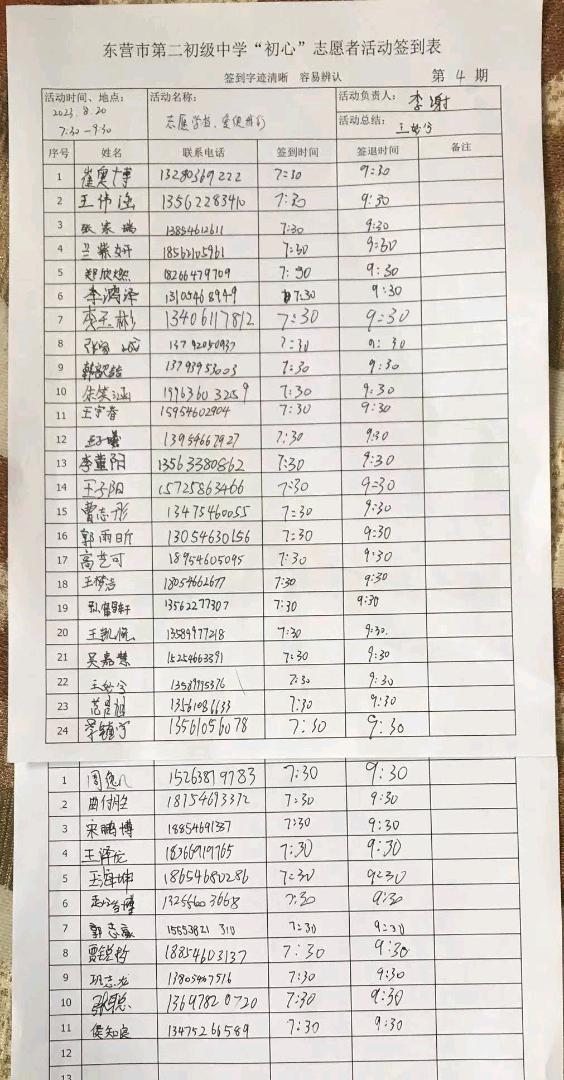 东营市第二初级中学“初心”志愿者活动签到表
签到字迹清晰 容易辨认 第 4 期
活动时间、地点： 活动名称： 活动负责人： 李谢
2023.8.20 志愿学校、爱使前行
7:30-9:30 活动总结： 王妤兮
序号 姓名 联系电话 签到时间 签退时间 备注
1 崔奥博 13280369222 7:30 9:30
2 王伟涵 13562283410 7:30 9:30
3 张家瑞 13854612611 7:30 9:30
4 兰紫妍 18562105961 7:30 9:30
5 郑欣燃 18266479709 7:30 9:30
6 李鸿泽 13105468949 7:30 9:30
7 李玉彬 13406117812 7:30 9:30
8 13792050937 7:30 9:30
9 13793953003 7:30 9:30
10 朱笑涵 19963603259 7:30 9:30
11 王宇春 15954602904 7:30 9:30
12 13954667927 7:30 9:30
13 李董阳 13563380862 7:30 9:30
14 王子阳 15725863466 7:30 9:30
15 曹志彤 13475460055 7:30 9:30
16 郭雨昕 13054630156 7:30 9:30
17 高艺可 18954605095 7:30 9:30
18 王梦志 18054662677 7:30 9:30
19 13562277307 7:30 9:30
20 王凯侃 13589977218 7:30 9:30.
21 吴嘉慧 15254663391 7:30 9:30
22 王妤兮 13589995376 7:30 9:30
23 范昌旭 13561086633 7:30 9:30
24 13561056078 7:30 9:30
1 周逸凡 15263879783 7:30 9:30
2 曲付胜 18754693372 7:30 9:30
3 宋鹏博 18854691387 7:30 9:30
4 王泽龙 18366919765 7:30 9:30
5 王海坤 18654680286 7:30 9:30
6 13255603668 7:30 9:30
7 郭志豪 15553821310 7:30 9:30
8 贾锐哲 18854603137 7:30 9:30
9 班志龙 13805467516 7:30 9:30
10 张聪 13697820720 7:30 9:30
11 侯知良 13475266589 7:30 9:30
12
13